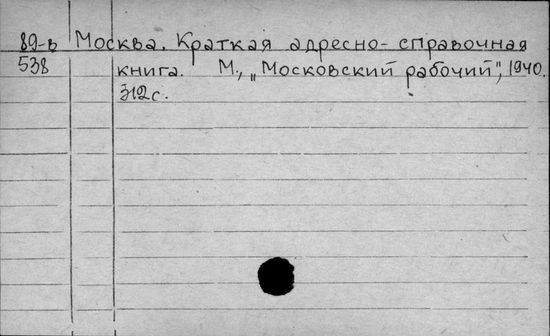 89-в Москва. Краткая адресно-справочная
538 книга. М., „Московский рабочий", 1940.
312 с.